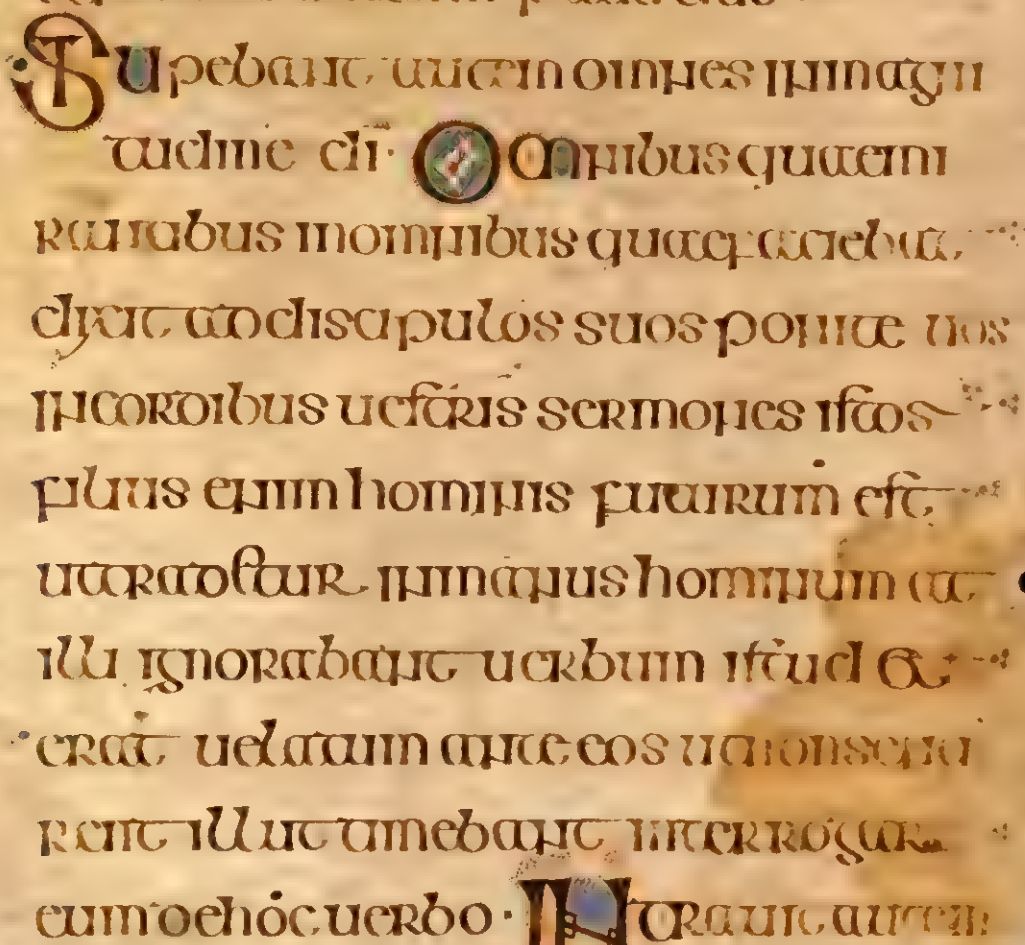 Stupebant autem omnes inmagni
tudine di · Omnibus quaemi
rantibus inomnibus quaefaciebat
dixit addiscipulos suos ponite uos
incordibus uestris sermones istos
filius enim hominis futurum est
uttradatur inmanus hominum at
illi ignorabant uerbum istud et
erat uelatum ante eos utnonsenti
rent illut timebant interrogar
eum dehoc uerbo · Intrauit autem